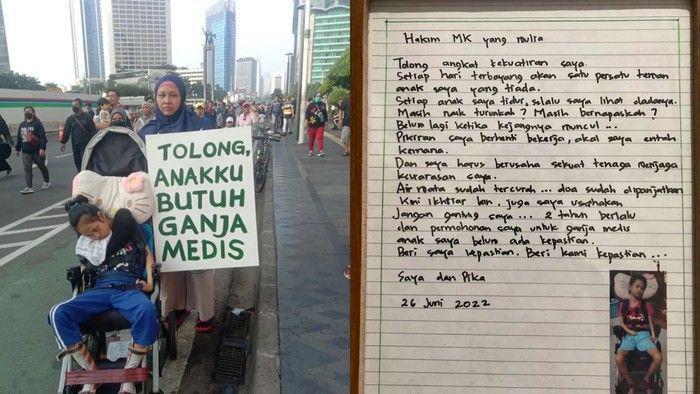 TOLONG,
ANAKKU
BUTUH
GANJA
MEDIS
Hakim MK yang mulia
Tolong angkat kekuatiran saya.
Setiap hari terbayang akan satu persatu teman
anak saya yang tiada.
Setiap anak saya tidur, selalu saya lihat dadanya.
Masih naik turunkah? Masih bernapaskah?
Belum lagi ketika kejangnya muncul...
Pikiran saya berhenti bekerja, akal saya entah
kemana.
Dan saya harus berusaha sekuat tenaga menjaga
kewarasan saya.
Air mata sudah tercurah... doa sudah dipanjatkan
Kini ikhtiar lan, juga saya usahakan
Jangan gantung saya... 2 tahun berlalu
dan permohonan saya untuk ganja medis
anak saya belum ada kepastian.
Beri saya kepastian. Beri kami kepastian...
Saya dan Pika
26 Juni 2022